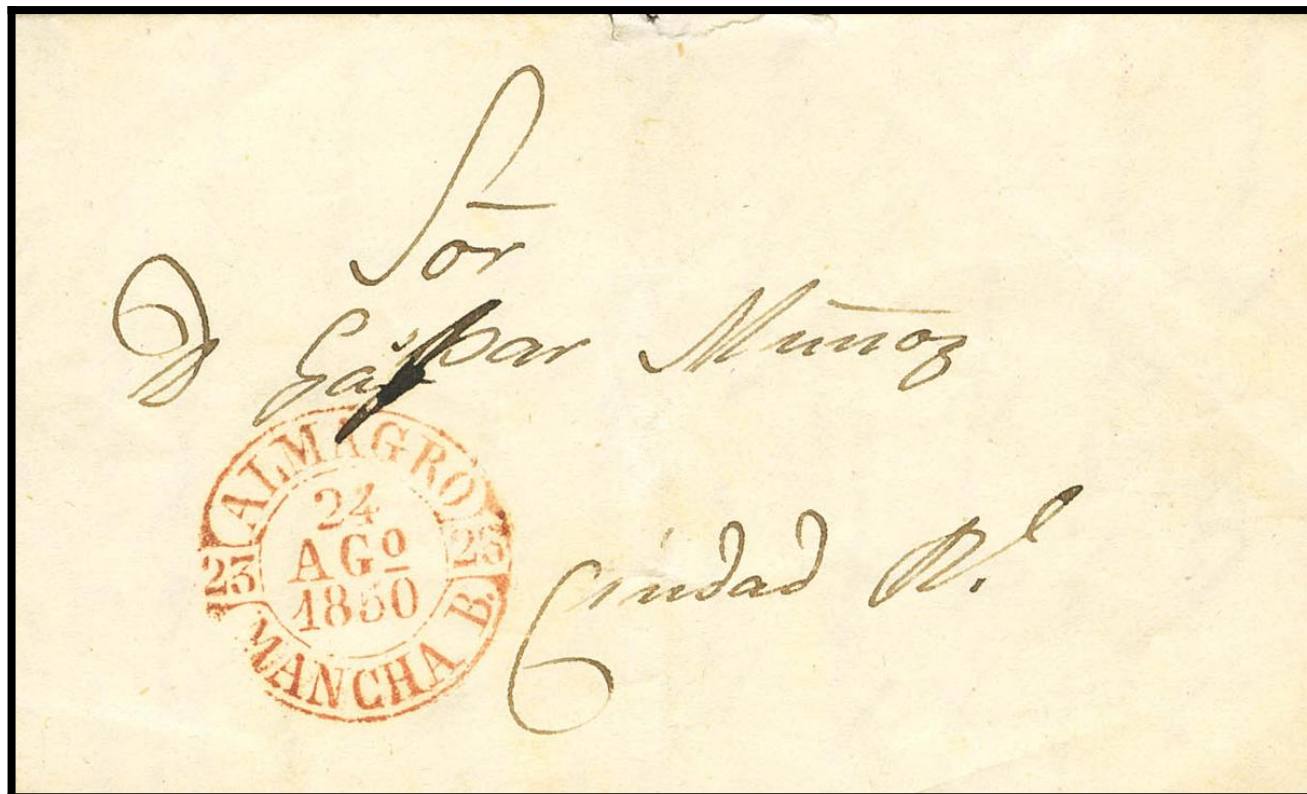 Sor
D Gaspar Muñoz
Ciudad Rl.
ALMAGRO
24
AGº
1850
23 23
MANCHA B.